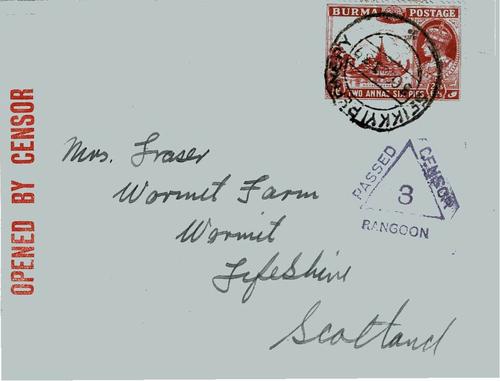 BURMA POSTAGE
TWO ANNAS SIX PIES
OPENED BY CENSOR
PASSED
CENSOR
3
RANGOON
Mrs. Fraser
Wormit Farm
Wormit
Fifeshire
Scotland